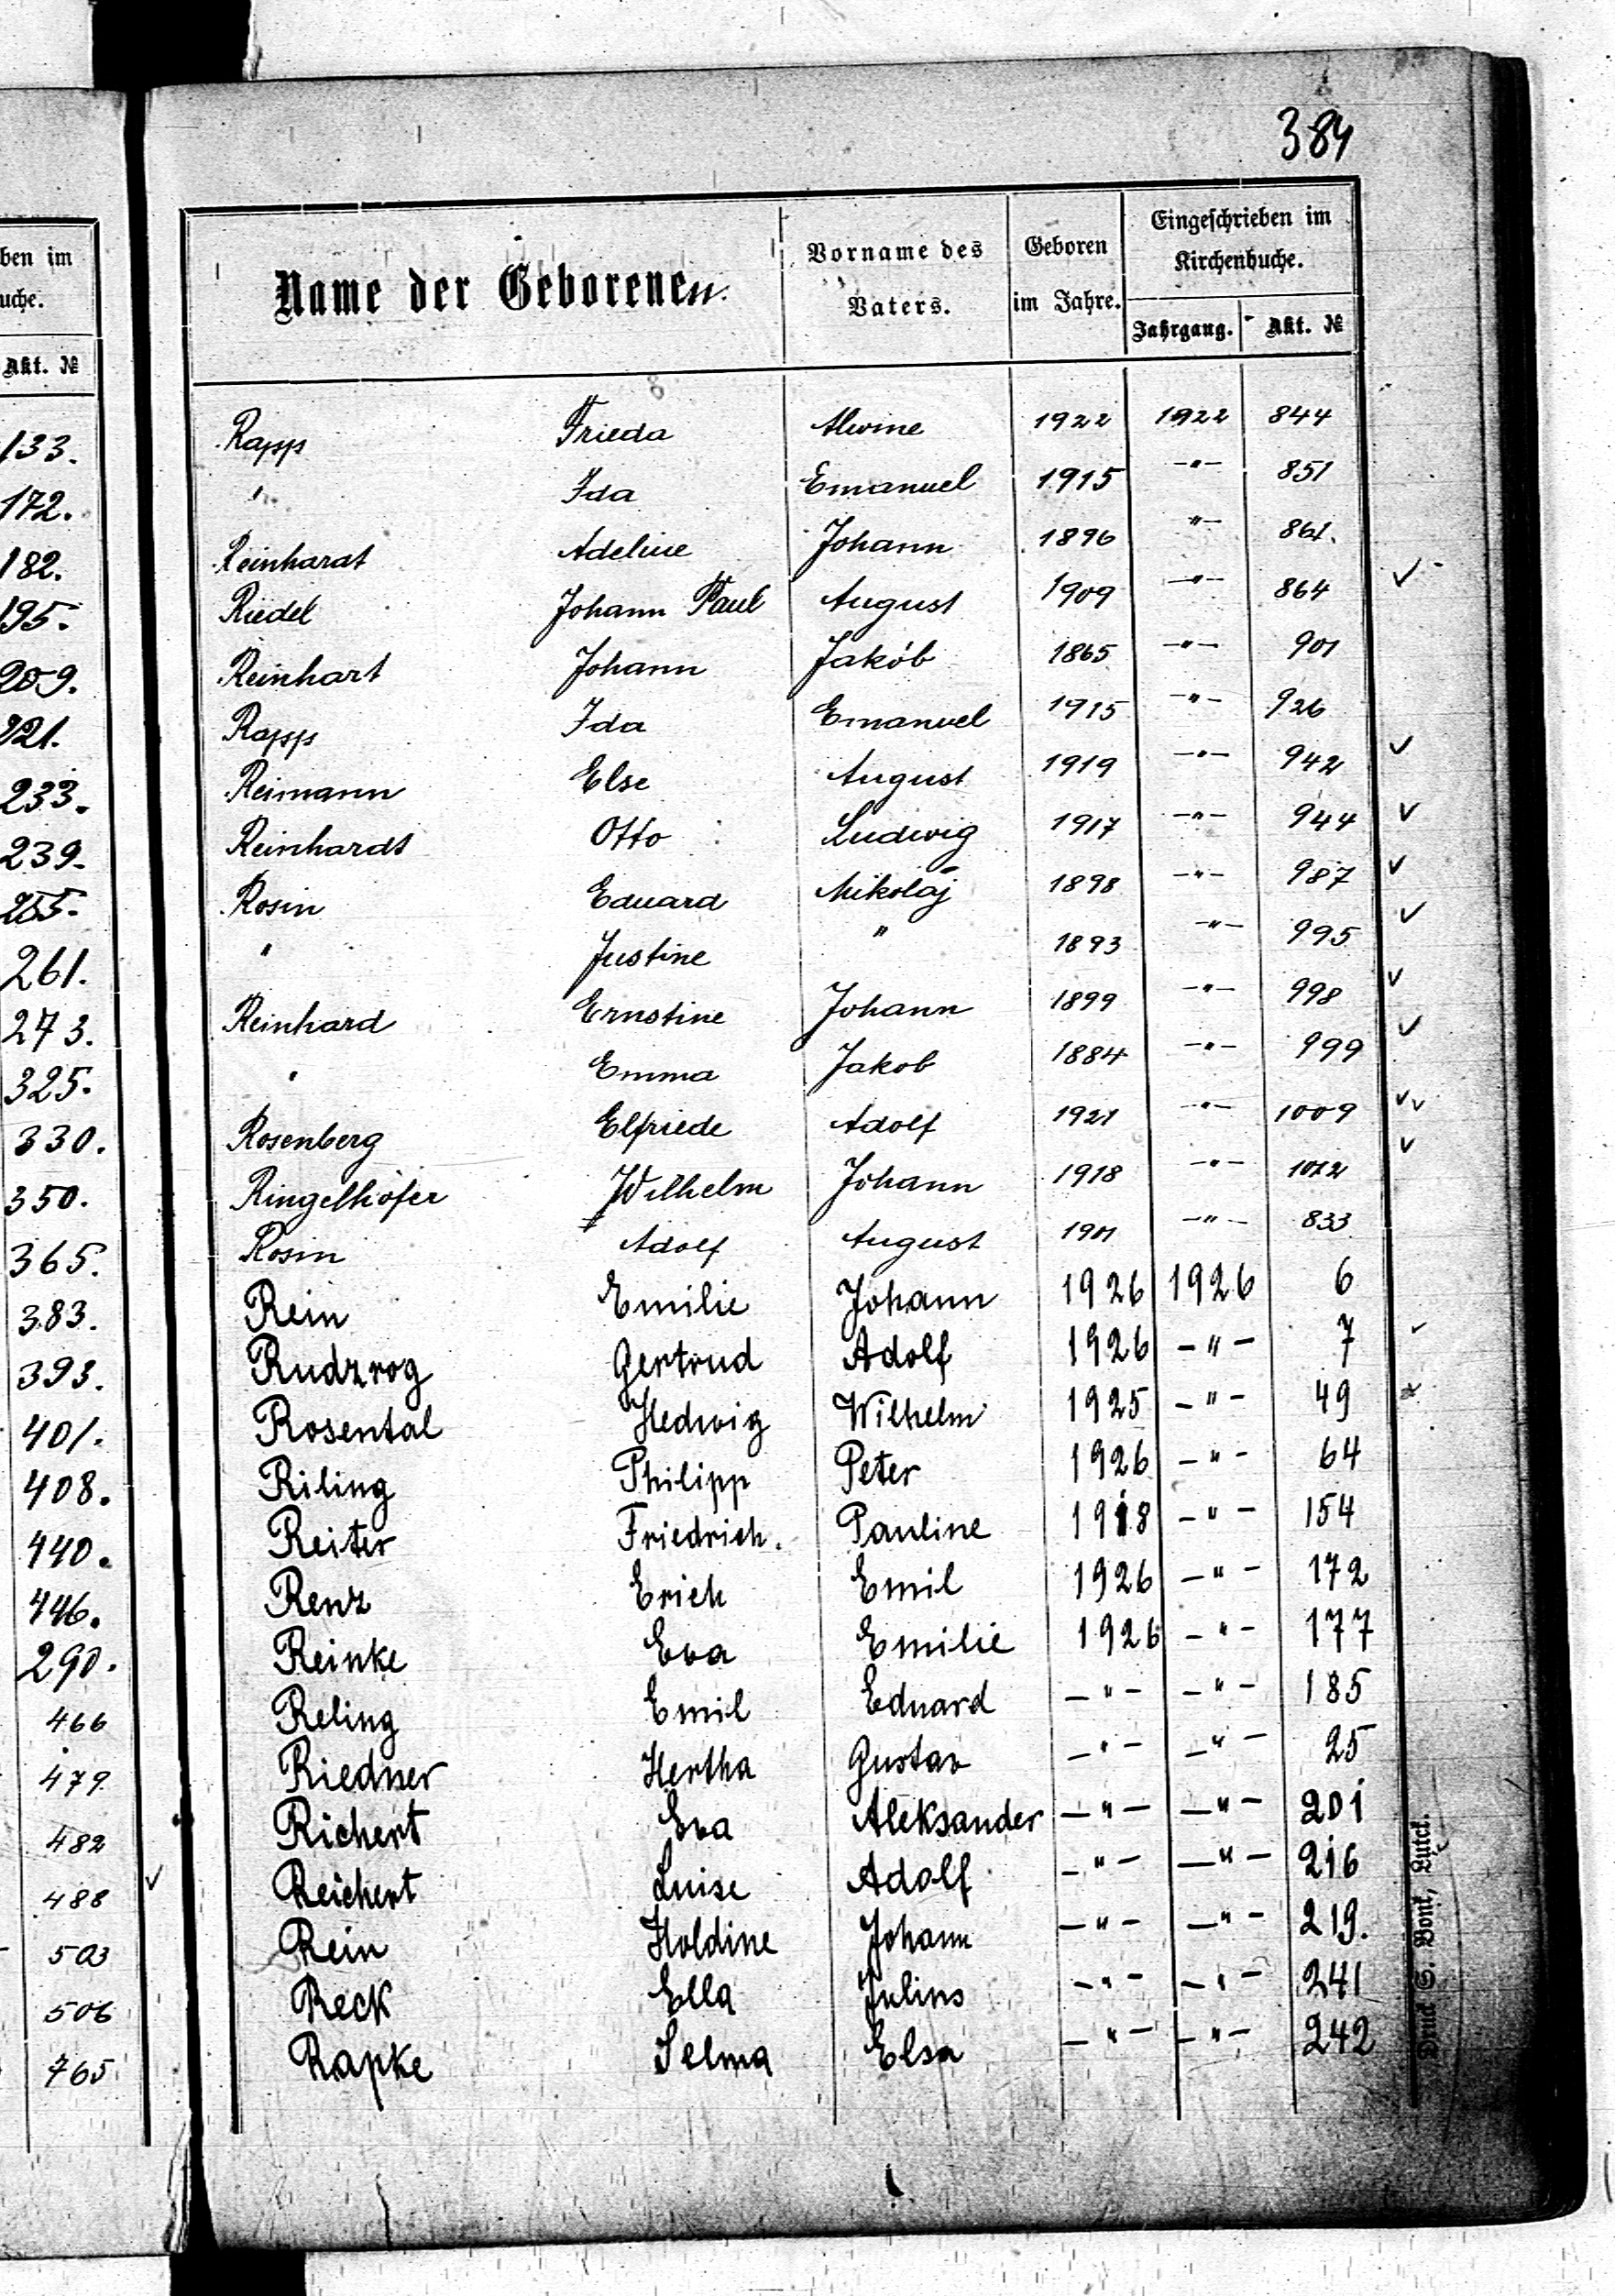 384
ben im
uche.
Akt. №
133.
172.
182.
195.
209.
221.
233.
239.
255.
261.
273.
325.
330.
350.
365.
383.
393.
401.
408.
440.
446.
290.
466
479
482
488
503
506
765
Name der Geborenen. Vorname des Vaters. Geboren im Jahre. Eingeschrieben im Kirchenbuche.
Jahrgang. Akt. №
Rapp Frieda Alwine 1922 1922 844
" Ida Emanuel 1915 -"- 851
Reinhardt Adeline Johann 1896 -"- 861.
Riedel Johann Paul August 1909 -"- 864 ✓
Reinhart Johann Jakób 1865 -"- 901
Rapp Ida Emanuel 1915 -"- 926
Reimann Else August 1919 -"- 942 ✓
Reinhardt Otto Ludwig 1917 -"- 944 ✓
Rosin Eduard Mikolaj 1898 -"- 987 ✓
" Justine " 1893 -"- 995 ✓
Reinhard Ernstine Johann 1899 -"- 998 ✓
" Emma Jakob 1884 -"- 999 ✓
Rosenberg Elfriede Adolf 1921 -"- 1009 ✓✓
Ringelhöfer Wilhelm Johann 1918 -"- 1012 ✓
Rosin Adolf August 1901 -"- 833
Rein Emilie Johann 1926 1926 6
Rudzrog Gertrud Adolf 1926 -"- 7 ✓
Rosental Hedwig Wilhelm 1925 -"- 49
Riling Philipp Peter 1926 -"- 64
Reiter Friedrich. Pauline 1918 -"- 154
Renz Erich Emil 1926 -"- 172
Reinke Eva Emilie 1926 -"- 177
Reling Emil Eduard -"- -"- 185
Riedner Hertha Gustav -"- -"- 25
Richert Eva Aleksander -"- -"- 201
✓ Reichert Luise Adolf -"- -"- 216
Rein Holdine Johann -"- -"- 219.
Reck Ella Julius -"- -"- 241
Rapke Selma Elsa -"- -"- 242
Druck S. Bonk, Lutck.